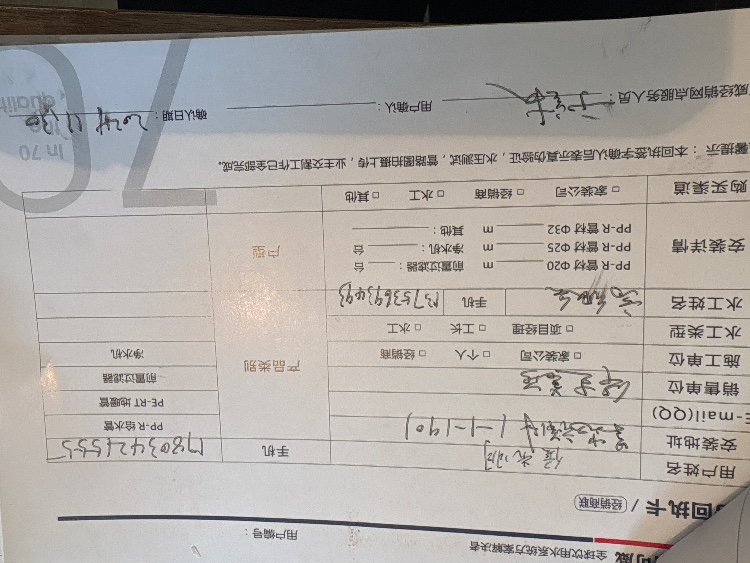 尚威
全球饮用水系统方案解决者
用户编号：
回执卡 / 经销商联
用户姓名 手机 17803421555
安装地址 1-1-1901
E-mail(QQ)
销售单位
施工单位 □ 家装公司 □ 个人 □ 经销商
水工类型 □ 项目经理 □ 工长 □ 水工
水工姓名 手机 13753693493
产品类别
PP-R 给水管
PE-RT 地暖管
前置过滤器
净水机
安装详情
PP-R 管材 Φ20 m 前置过滤器： 台
PP-R 管材 Φ25 m 净水机： 台
PP-R 管材 Φ32 m 其他：
户型
购买渠道 □ 家装公司 □ 经销商 □ 水工 □ 其他
馨提示：本回执签字确认后表示真伪验证，水压测试，管路图拍摄上传，业主交割工作已全部完成。
威经销网点服务人员： 用户确认： 确认日期：2024 11 30
70
In 70
quality